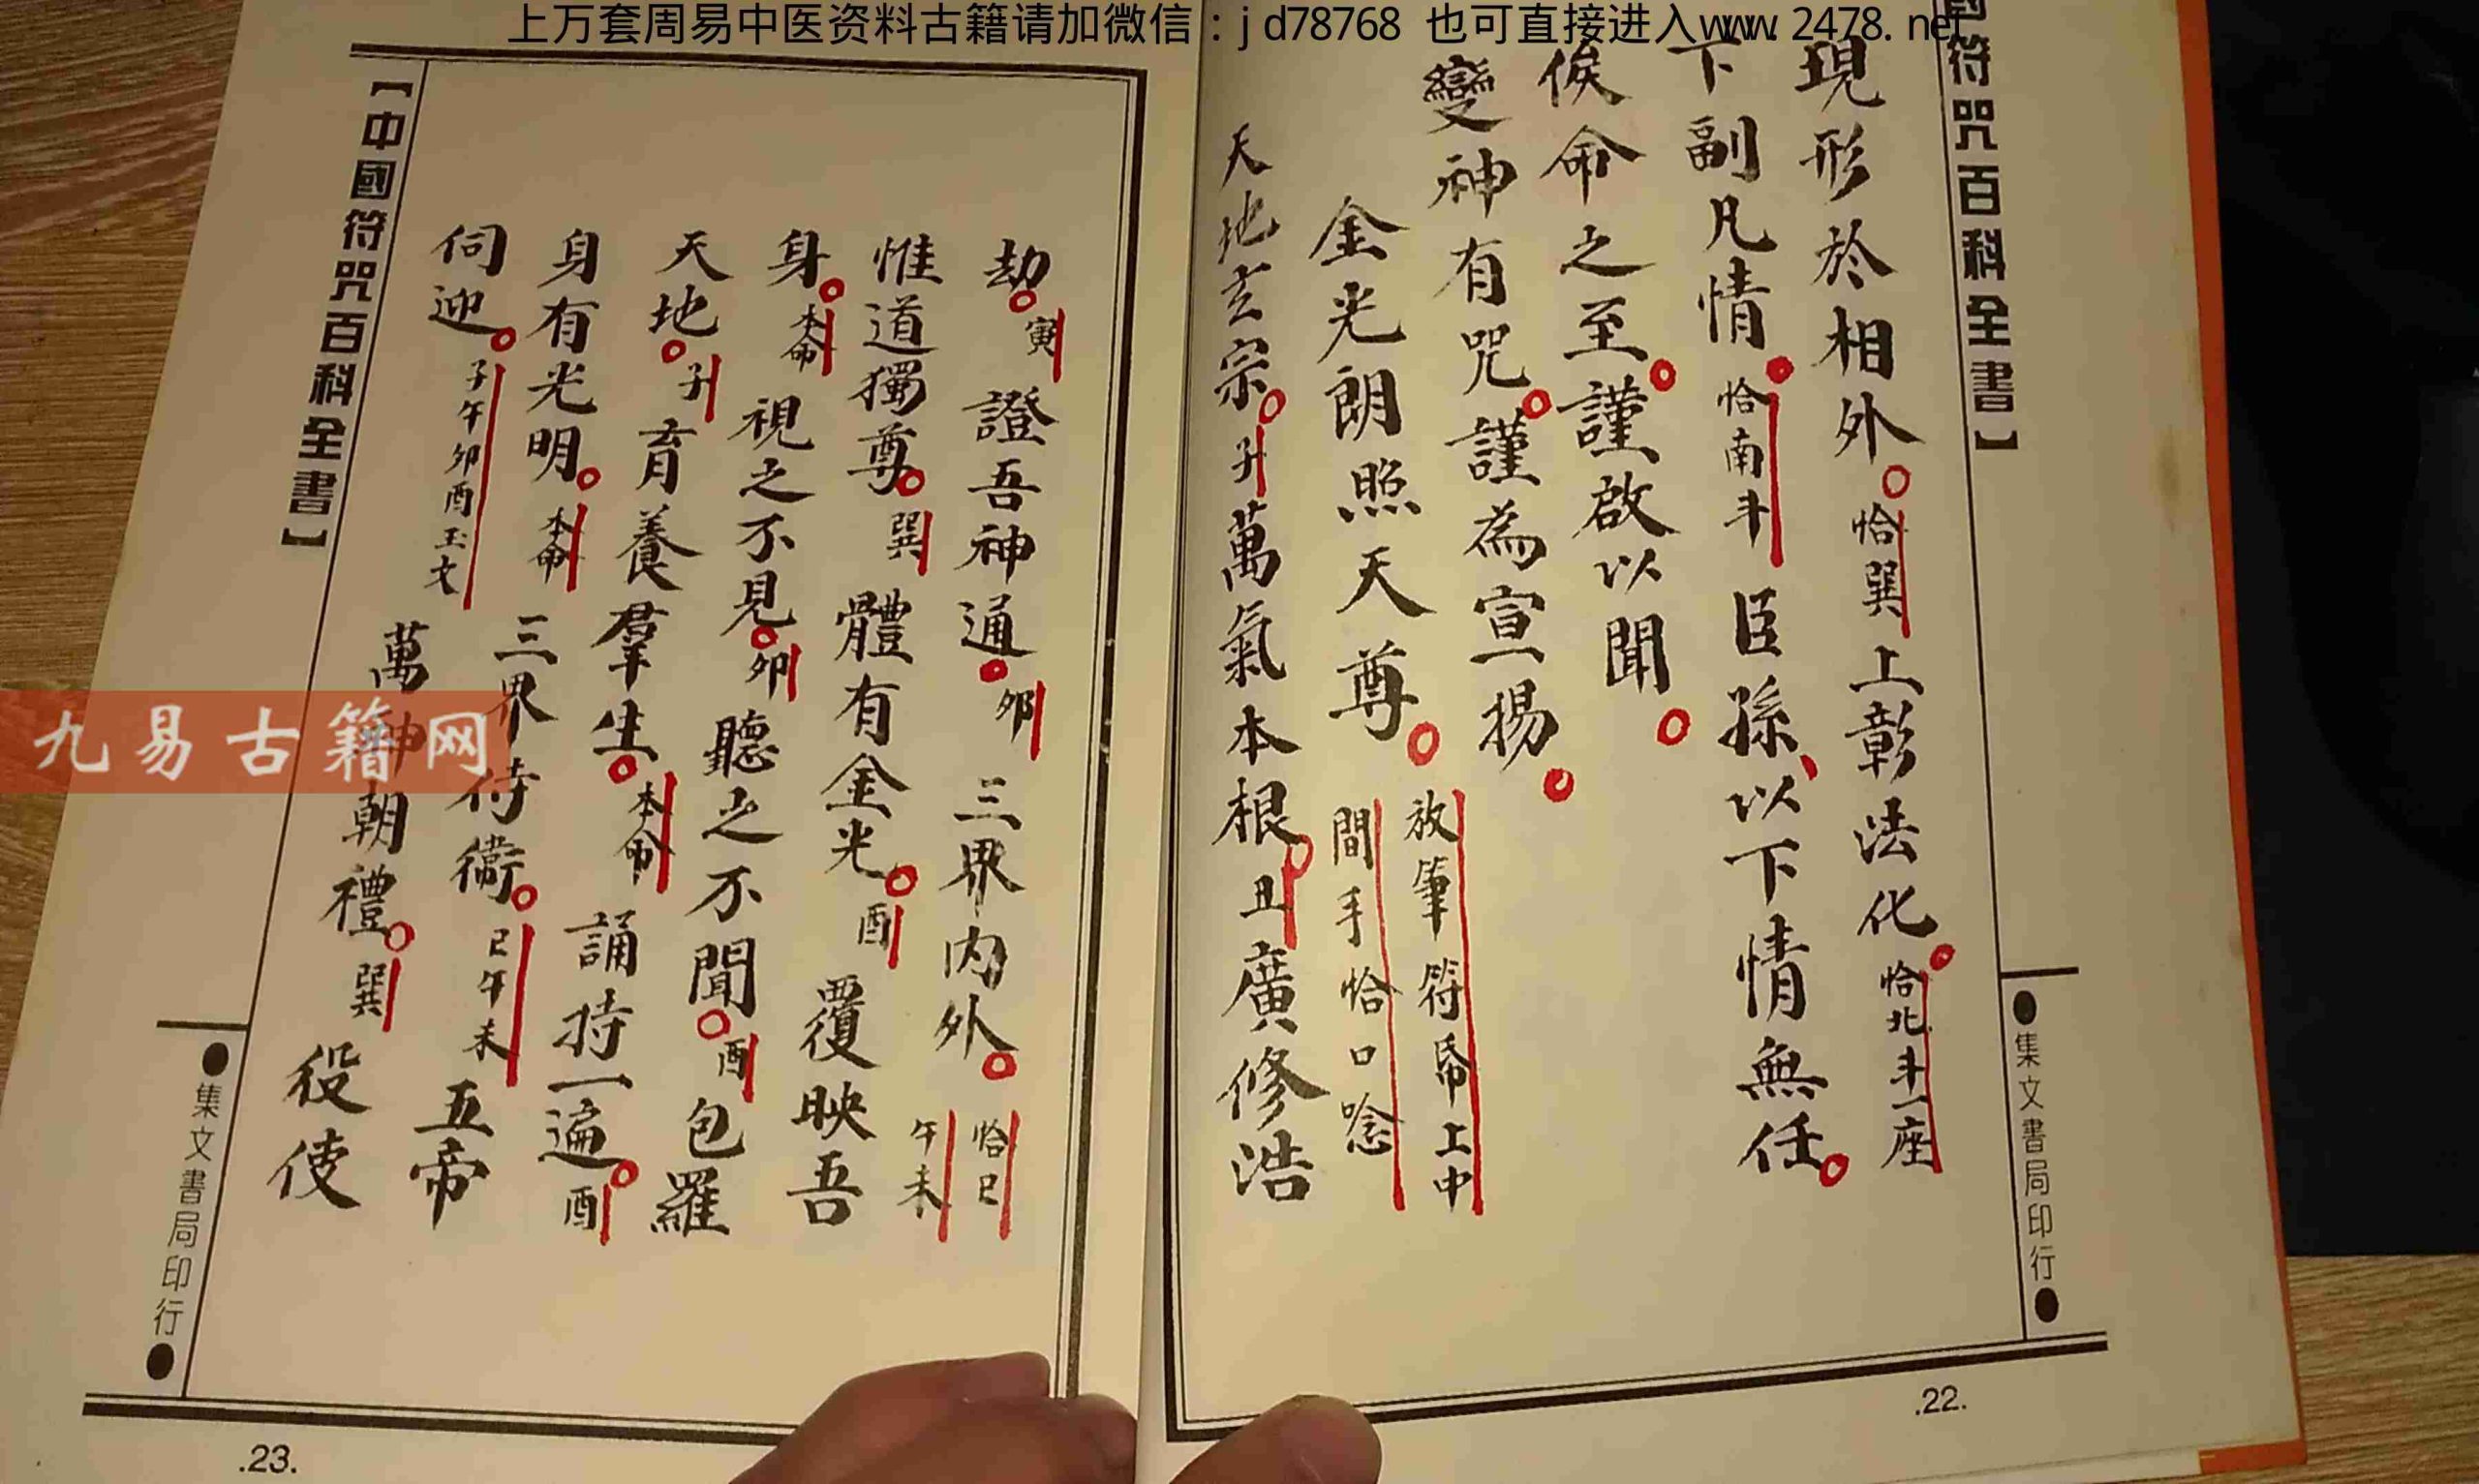 上万套周易中医资料古籍请加微信：jd78768 也可直接进入www.2478.net
國符咒百科全書】
現形於相外 恰巽 上彰法化 恰北斗一座
下副凡情 恰南斗 臣孫以下情無任
俟命之至謹啟以聞
變神有咒謹為宣揚
金光朗照天尊 放筆符帋上中
間手恰口唸
天地玄宗 子 萬氣本根 丑 廣修浩
●集文書局印行●
.22.
劫 寅 證吾神通 卯 三界內外 恰巳
午未
惟道獨尊 巽 體有金光 酉 覆映吾
身 本命 視之不見 卯 聽之不聞 酉 包羅
天地 子 育養羣生 本命 誦持一遍 酉
身有光明 本命 三界侍衞 巳午未 五帝
伺迎 子午卯酉玉文 萬神朝禮 巽 役使
【中國符咒百科全書】
●集文書局印行●
.23.
九易古籍网